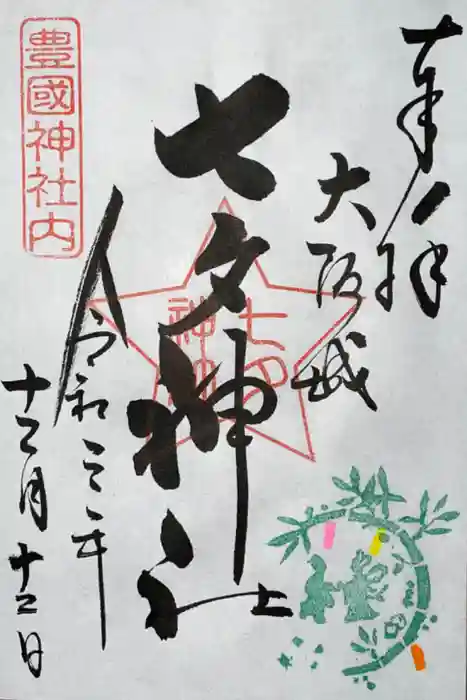 奉拝
大阪城
七夕神社
七夕
神社
豊國神社内
令和三年
十二月十二日